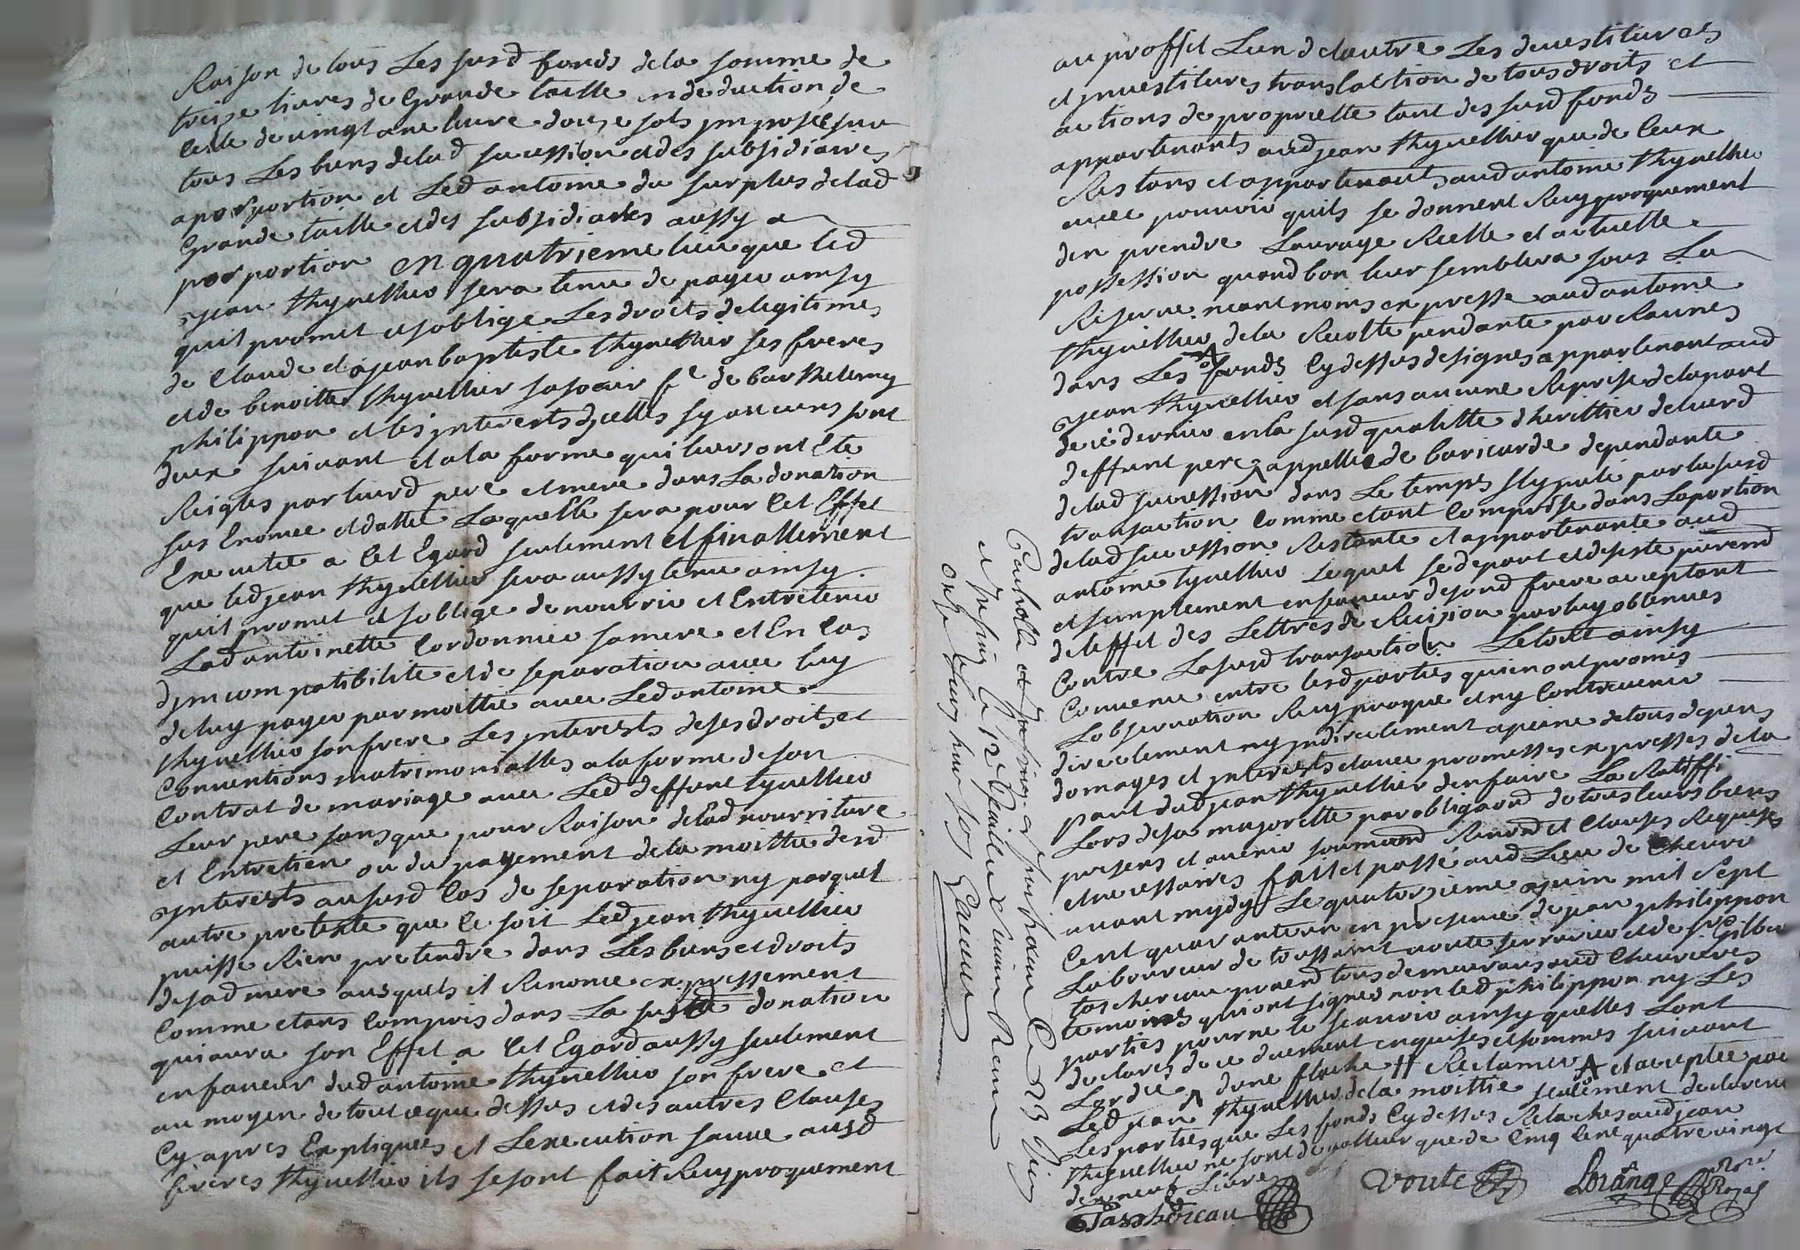 Raison de tous Les susd fonds dela somme de
treise livres de Grande taille en deduction de
celle de vingt une livre douse sols imposée sur
tous Les biens delad succession et des subsidiaires
aporportion et Led antoine du surplus delad
Grande taille et des subsidiaires aussy a
porportion en quatrieme lieu que led
jean thynellier sera tenu de payer ainsy
quil promet et soblige Les droits de legitimes
de Claude et de jean baptiste thynellier ses freres
et de benoitte thynellier sa soeur fe de barthelemy
philippon et les interests dycelles sy aucuns sont
deux suivant et a la forme qui leurs ont Ete
Reigles par leurd pere et mere dans La donation
sus Enomee et dattée Laquelle sera pour Cet Effet
Executée a Cet Egard seulement et finallement
que led jean thynellier sera aussy tenu ainsy
quil promet et soblige de nourrir et Entretenir
Lad antoinette Cordonnier sa mere et En Cas
dincompatibilite et de separation avec luy
de luy payer par moittié avec Led antoine
thynellier son frere Les interests de ses droits et
Conventions matrimonialles a la forme de son
Contrat de mariage avec Led deffunt tynellier
Leur pere sans que pour Raison delad nourriture
et Entretien ou du payement de la moittié desd
interests au susd Cas de separation ny par quel
autre pretexte que ce soit Led jean thynellier
puisse Rien pretendre dans Les biens et droits
de sad mere ausquels il Renonce expressement
Comme etans Compris dans La susd donation
qui aura son Effet a Cet Egard aussy seulement
en faveur dud antoine thynellier son frere et
au moyen de tout ce que dessus et des autres Clauses
Cy apres Expliquées et Lexecution sauve ausd
freres thynellier ils se sont fait Reciproquement
au proffit Lun de lautre Les devestitures
et investitures translaction de tous droits et
actions de propriette tant des susd fonds
appartenants aud jean thynellier que de Ceux
Restans et appartenants aud antoine thynellier
avec pouvoir quils se donnent Reciproquement
den prendre Lauraye Rielle et actuelle
possession quand bon leur semblera sous La
Reserve neant moins expresse aud antoine
thynellier de la Recolte pendante par Racines
dans Les fonds Cy dessus designes appartenant aud
jean thynellier et sans aucune Reprise de la part
de ce dernier en la susd qualitte dherittier de leurd
deffunt pere appellée de baricarde dependante
delad succession dans Le temps stypulé par la susd
transaction Comme etant Comprise dans La portion
delad succession Restante et appartenante aud
antoine tynellier Lequel se depart et desiste purement
et simplement en faveur de sond frere acceptant
de leffet des Lettres de Recision par luy obtenues
Contre La susd transaction Le tout ainsy
Convenu entre lesd parties qui en ont promis
Lobservation Reciproque et ny Contrevenir
directement ny indirectement a peine de tous depens
domages et interests et avec promesses expresses de la
part dud jean thynellier den faire La Ratiffi
Lors de sa majoritte par obligaond de tous leurs biens
presens et avenir soumiond Renond et Clauses Requises
et necessaires fait et passé aud Lieu de Chevri
avant midy Le quatorsieme juin mil sept
Cent quarante un en presence de jean philippon
Laboureur de toussaint voute serrurier et de sr Gilber
tashereau praend tous demeurans aud Chevrieres
temoins qui ont signés non led philippon ny Les
parties pour ne le scavoir ainsy quelles Lont
declarés de ce duement enquises et sommes suivant
Lordre dune flache # Reclamer et acceptée par
Led jean thynellier de la moittie seulement declarent
Les parties que Les fonds Cy dessus Relachés aud jean
thynellier ne sont de valleur que de Cinq Cent quatre vingt
dix neuf Livre
Tashereau voute Lorange
Controllé et
onze livres huit sols